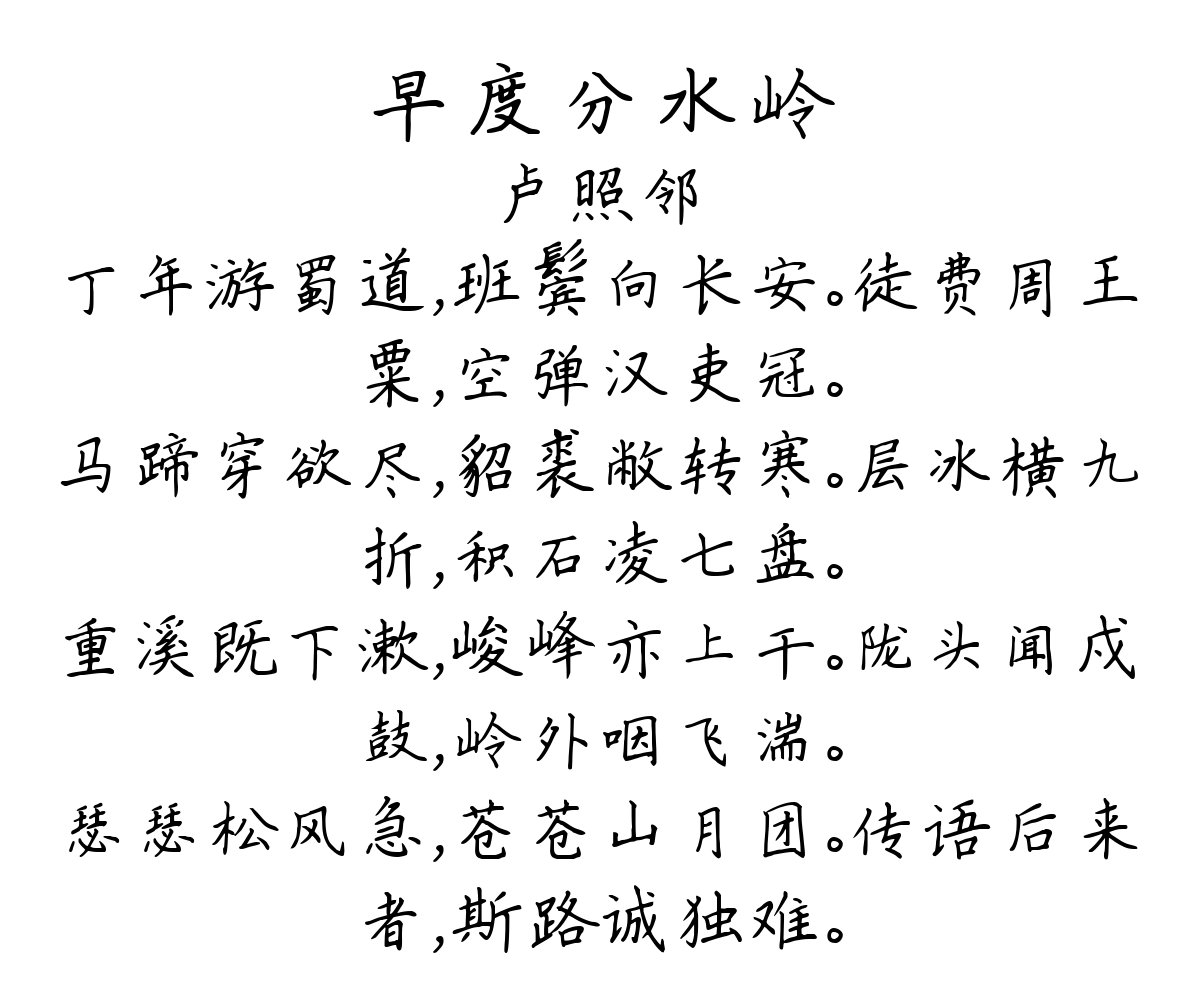 早度分水岭
卢照邻
丁年游蜀道,班鬓向长安。徒费周王
粟,空弹汉吏冠。
马蹄穿欲尽,貂裘敝转寒。层冰横九
折,积石凌七盘。
重溪既下漱,峻峰亦上干。陇头闻戍
鼓,岭外咽飞湍。
瑟瑟松风急,苍苍山月团。传语后来
者,斯路诚独难。